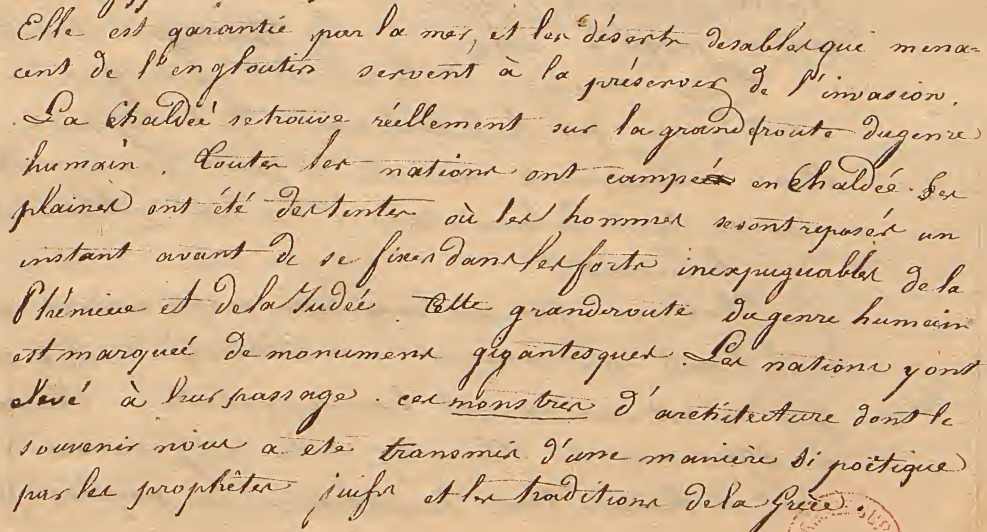 Elle est garantie par la mer, et les déserts desables qui mena-
cent de l'engloutir servent à la préserver de l'invasion.
La Chaldée setrouve réellement sur la grande route dugenre
humain. Toutes les nations ont campé en Chaldée. Ses
plaines ont été destentes où les hommes sesont reposés un
instant avant de se fixer dans les forts inexpugnables de la
Phénicie et dela Judée. Cette granderoute dugenre humain
est marquée de monumens gigantesques. Les nations yont
élevé à leur passage. ces monstres d'architecture dont le
souvenir nous a été transmis d'une manière si poëtique
par les prophêtes juifs et les traditions dela Grèce.